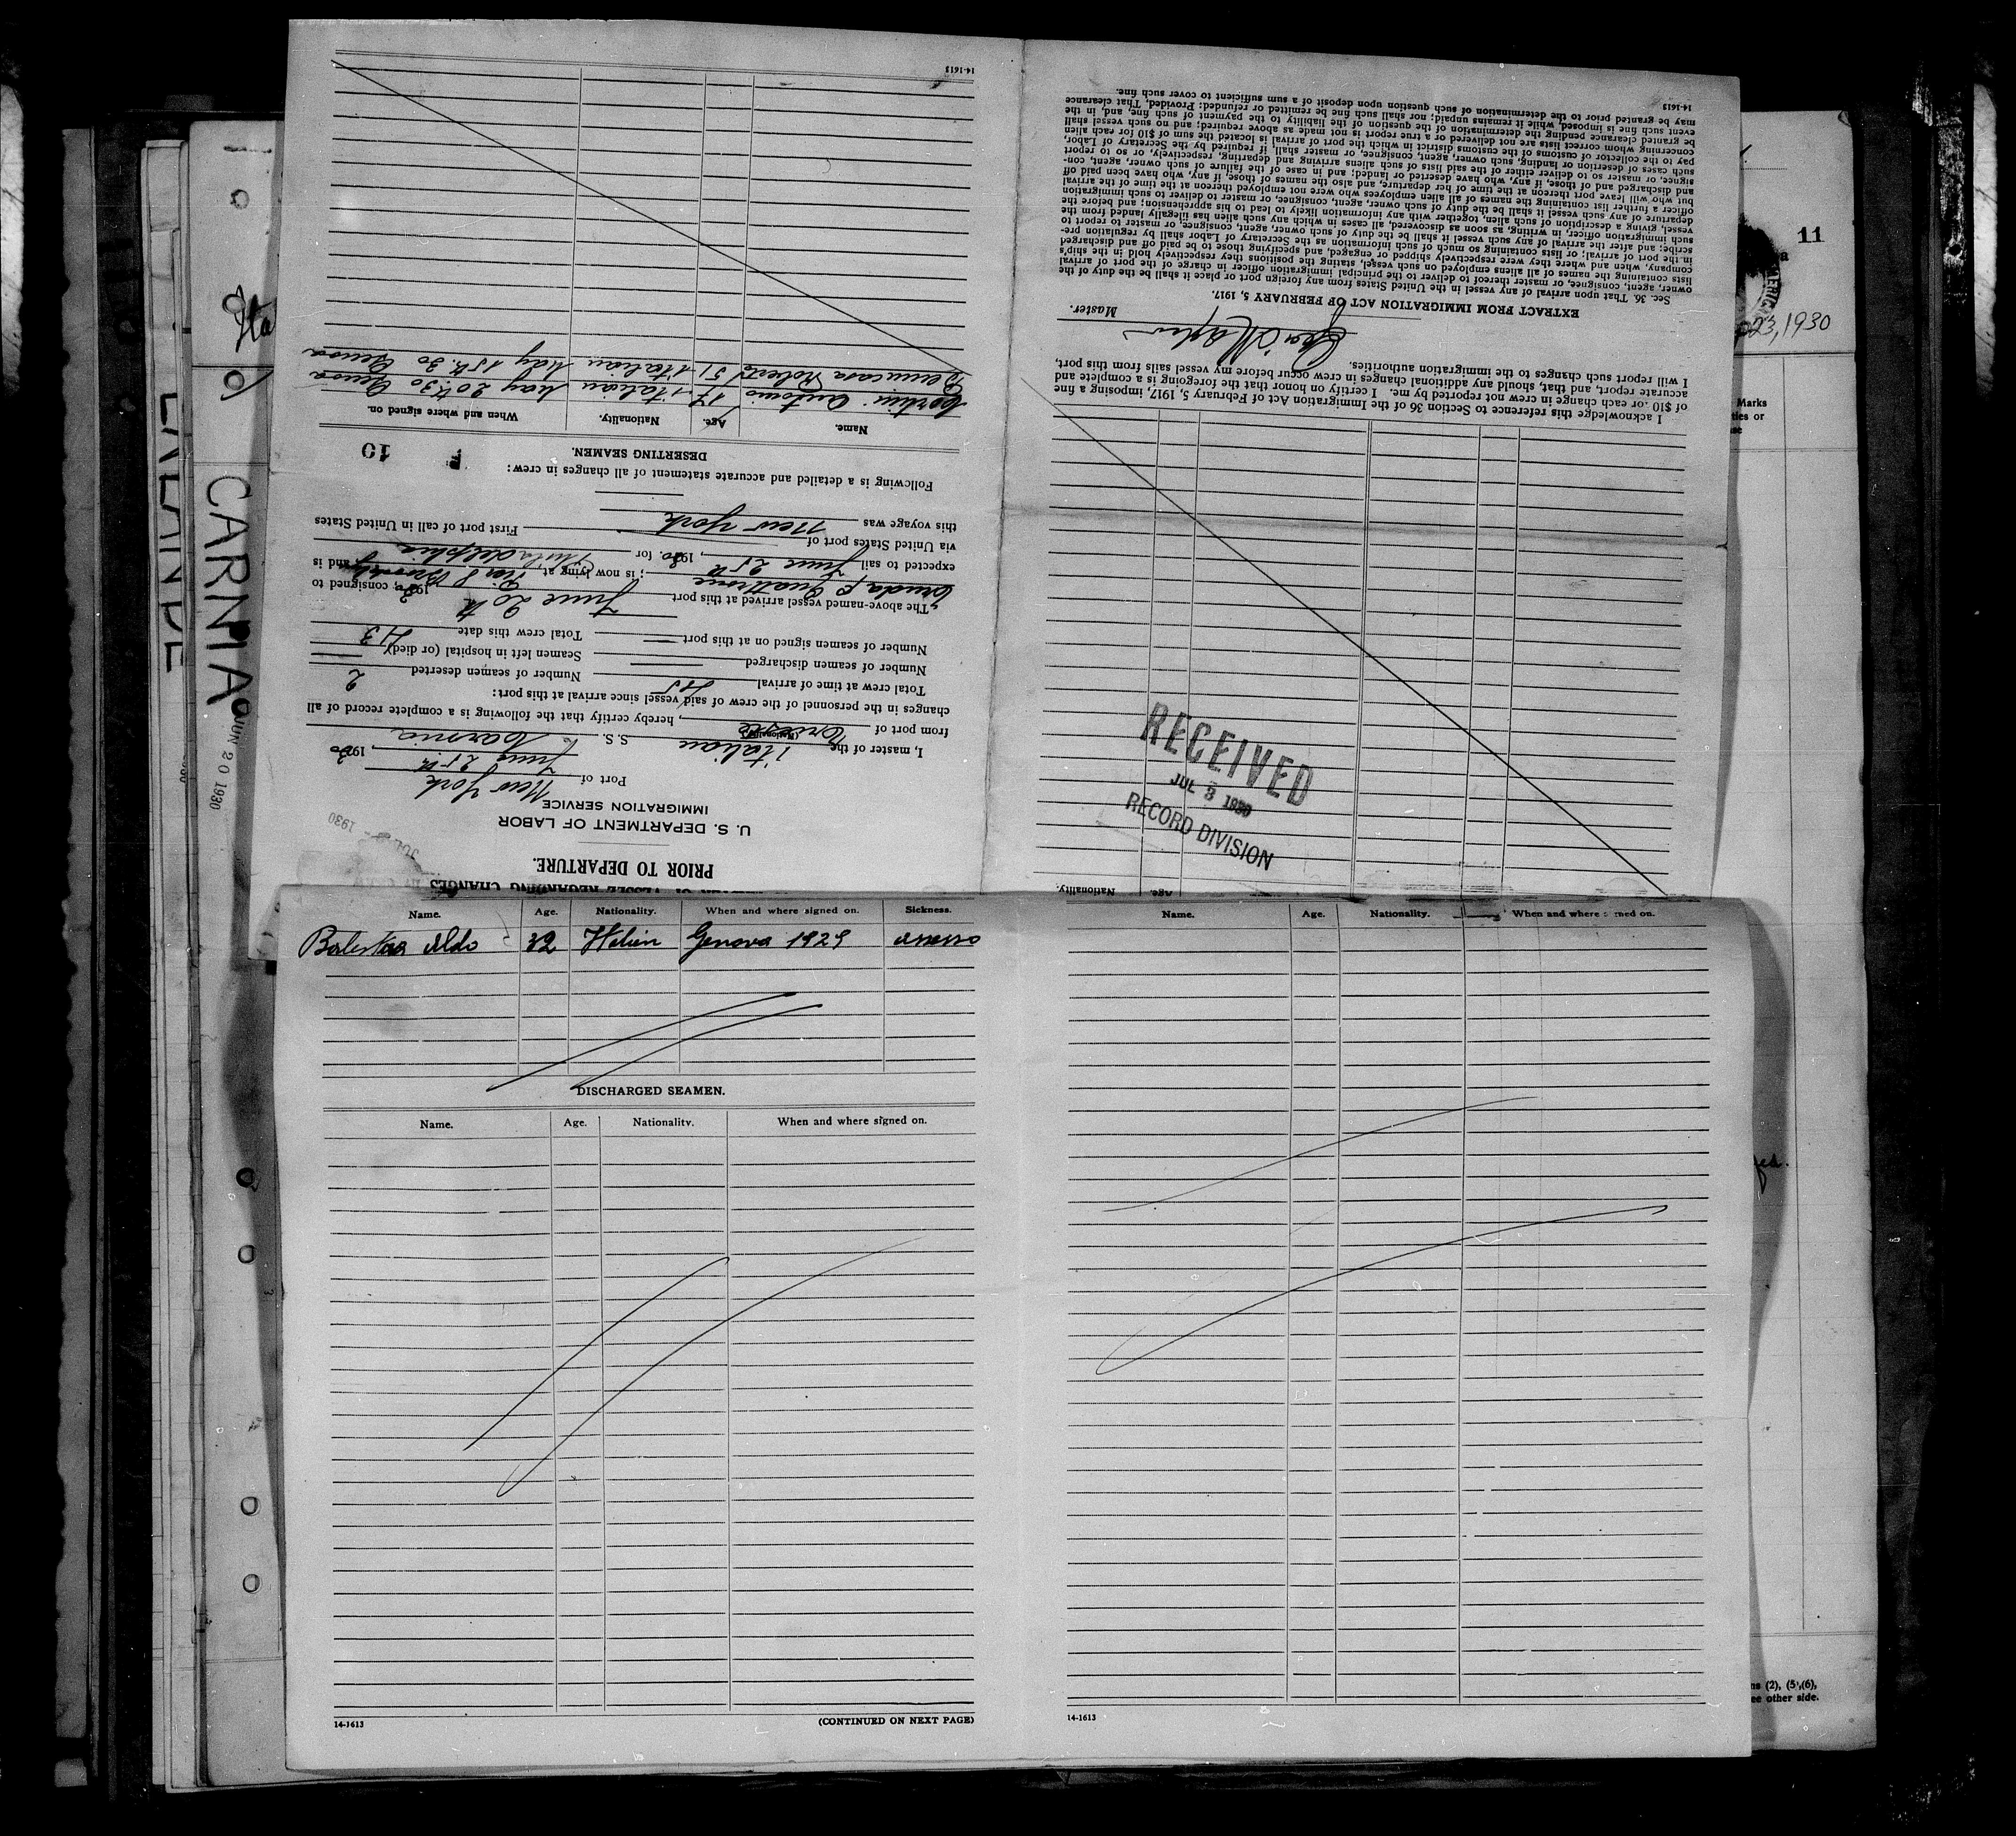 14-1613
PRIOR TO DEPARTURE.
U. S. DEPARTMENT OF LABOR
IMMIGRATION SERVICE
Port of New York
June 25th, 1930
I, master of the Italian S. S. Carnia
(Nationality)
from port of Trieste, hereby certify that the following is a complete record of all
changes in the personnel of the crew of said vessel since arrival at this port:
Total crew at time of arrival 45 Number of seamen deserted 2
Number of seamen discharged Seamen left in hospital (or died)
Number of seamen signed on at this port Total crew this date 43
The above-named vessel arrived at this port June 20th 1930, consigned to
; is now lying at Pier and is
expected to sail June 25th, 1930, for Philadelphia
via United States port of First port of call in United States
this voyage was New York
Following is a detailed and accurate statement of all changes in crew:
F 10
DESERTING SEAMEN.
Name. Age. Nationality. When and where signed on.
Antonio 17 Italian May 20th 30 Genova
Roberto 51 Italian May 15th 30 Genova
14-1613
Age. Nationality.
RECEIVED
JUL 3 1930
RECORD DIVISION
I acknowledge this reference to Section 36 of the Immigration Act of February 5, 1917, imposing a fine
of $10 .or each change in crew not reported by me. I certify on honor that the foregoing is a complete and
accurate report, and that, should any additional changes in crew occur before my vessel sails from this port,
I will report such changes to the immigration authorities.
Master.
EXTRACT FROM IMMIGRATION ACT OF FEBRUARY 5, 1917.
Sec. 36. That upon arrival of any vessel in the United States from any foreign port or place it shall be the duty of the
owner, agent, consignee, or master thereof to deliver to the principal immigration officer in charge of the port of arrival
lists containing the names of all aliens employed on such vessel, stating the positions they respectively hold in the ship's
company, when and where they were respectively shipped or engaged, and specifying those to be paid off and discharged
in the port of arrival; or lists containing so much of such information as the Secretary of Labor shall by regulation pre-
scribe; and after the arrival of any such vessel it shall be the duty of such owner, agent, consignee, or master to report to
such immigration officer, in writing, as soon as discovered, all cases in which any such alien has illegally landed from the
vessel, giving a description of such alien, together with any information likely to lead to his apprehension; and before the
departure of any such vessel it shall be the duty of such owner, agent, consignee, or master to deliver to such immigration
officer a further list containing the names of all alien employees who were not employed thereon at the time of the arrival
but who will leave port thereon at the time of her departure, and also the names of those, if any, who have been paid off
and discharged and of those, if any, who have deserted or landed; and in case of the failure of such owner, agent, con-
signee, or master so to deliver either of the said lists of such aliens arriving and departing, respectively, or so to report
such cases of desertion or landing, such owner, agent, consignee, or master shall, if required by the Secretary of Labor,
pay to the collector of customs of the customs district in which the port of arrival is located the sum of $10 for each alien
concerning whom correct lists are not delivered or a true report is not made as above required; and no such vessel shall
be granted clearance pending the determination of the question of the liability to the payment of such fine, and, in the
event such fine is imposed, while it remains unpaid; nor shall such fine be remitted or refunded: Provided, That clearance
may be granted prior to the determination of such question upon deposit of a sum sufficient to cover such fine.
14-1613
Name. Age. Nationality. When and where signed on. Sickness.
Aldo 32 Genova 1929
DISCHARGED SEAMEN.
Name. Age. Nationality. When and where signed on.
14-1613 (CONTINUED ON NEXT PAGE)
Name. Age. Nationality. When and where signed on.
14-1613
CARNIA
JUN 20 1930
11
23, 1930
Marks
ns (2), (5), (6),
ee other side.